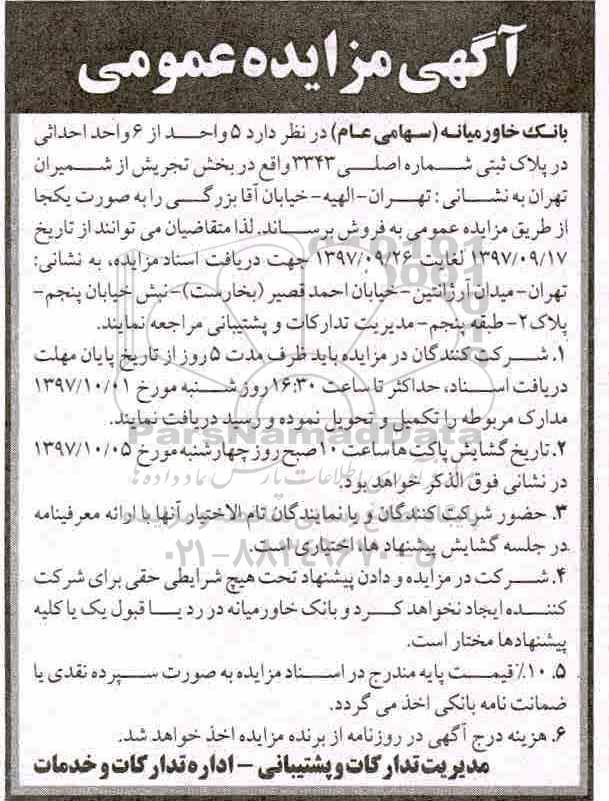 آگهی مزایده عمومی
بانک خاورمیانه (سهامی عام) در نظر دارد ۵ واحد از ۶ واحد احداثی
در پلاک ثبتی شماره اصلی ۳۳۴۳ واقع در بخش تجریش از شمیران
تهران به نشانی: تهران-الهیه-خیابان آقا بزرگی را به صورت یکجا
از طریق مزایده عمومی به فروش برساند. لذا متقاضیان می توانند از تاریخ
۱۳۹۷/۰۹/۱۷ لغایت ۱۳۹۷/۰۹/۲۶ جهت دریافت اسناد مزایده، به نشانی:
تهران-میدان آرژانتین-خیابان احمد قصیر (بخارست)-نبش خیابان پنجم-
پلاک ۲-طبقه پنجم-مدیریت تدارکات و پشتیبانی مراجعه نمایند.
۱. شرکت کنندگان در مزایده باید ظرف مدت ۵ روز از تاریخ پایان مهلت
دریافت اسناد، حداکثر تا ساعت ۱۶:۳۰ روز شنبه مورخ ۱۳۹۷/۱۰/۰۱
مدارک مربوطه را تکمیل و تحویل نموده و رسید دریافت نمایند.
ParsNamadData
۲. تاریخ گشایش پاکت ها ساعت ۱۰ صبح روز چهارشنبه مورخ ۱۳۹۷/۱۰/۰۵
در نشانی فوق الذکر خواهد بود.
۳. حضور شرکت کنندگان و یا نمایندگان تام الاختیار آنها با ارائه معرفینامه
در جلسه گشایش پیشنهاد ها، اختیاری است.
۴. شرکت در مزایده و دادن پیشنهاد تحت هیچ شرایطی حقی برای شرکت
کننده ایجاد نخواهد کرد و بانک خاورمیانه در رد یا قبول یک یا کلیه
پیشنهادها مختار است.
۵. ۱۰٪ قیمت پایه مندرج در اسناد مزایده به صورت سپرده نقدی یا
ضمانت نامه بانکی اخذ می گردد.
۶. هزینه درج آگهی در روزنامه از برنده مزایده اخذ خواهد شد.
مدیریت تدارکات و پشتیبانی - اداره تدارکات و خدمات